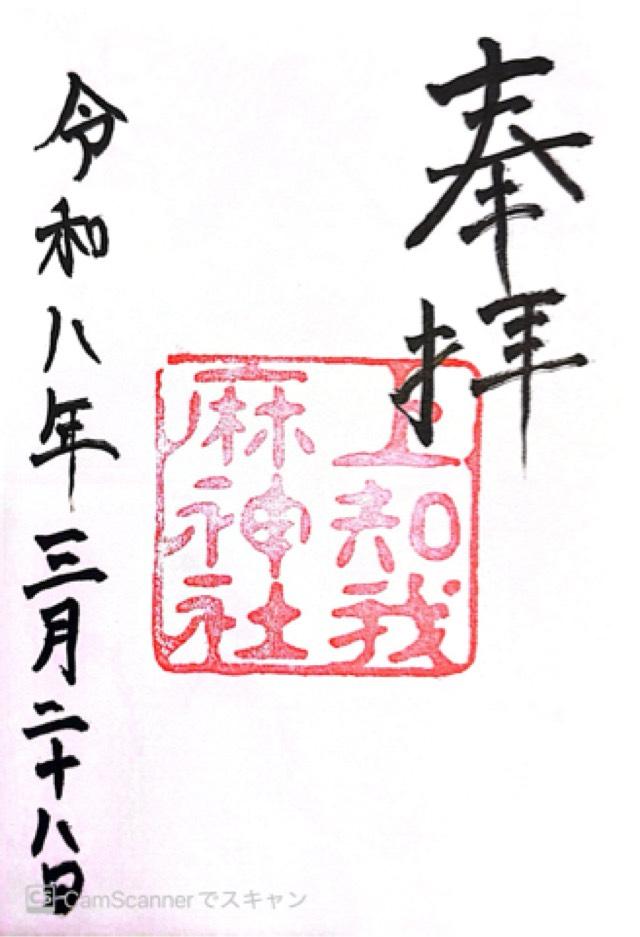 奉拝
上知我
麻神社
令和八年三月二十八日
CS CamScannerでスキャン